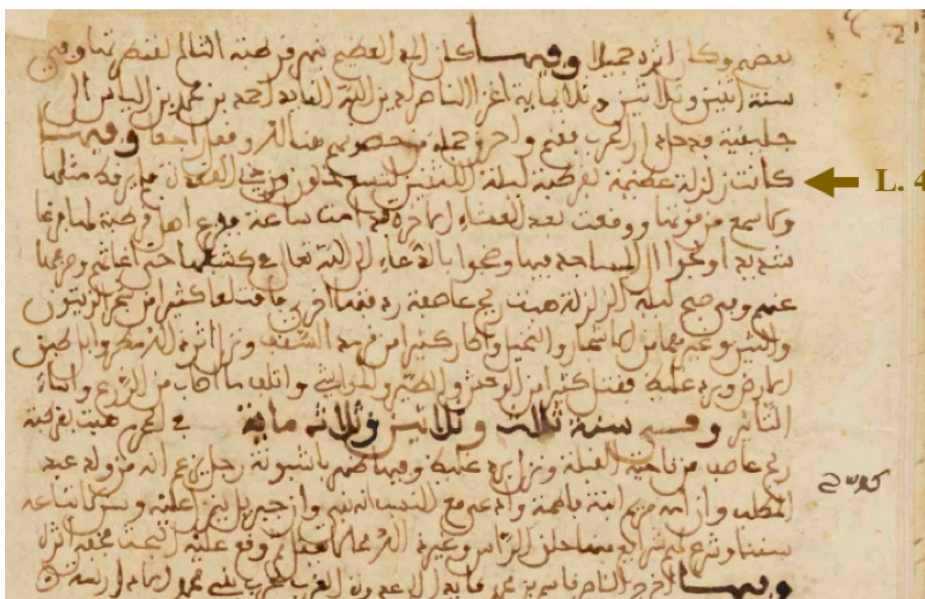 بعضهم وكان اثره جميلا وفيها كان المد العظيم بنهر قرطبة الثالم لقنطرتها وفي
سنة اثنين وثلاثين وثلاثماية اغزا الناصر لدين الله القايد احمد بن محمد بن الياس الى
جليقية فدخل ارض الحرب فغنم واحرق جملة من حصونهم هنالك وقفل راجعا وفيها
كانت زلزلة عظيمة بقرطبة ليلة الاثنين لتسع خلون من ذي القعدة لم ير قط مثلها
ولا سمع من قوتها ووقعت بعد العشاء الاخرة دامت ساعة ففزع اهل قرطبة لها فزعا
شديدا ولجوا الى المساجد فيها وضجوا بالدعاء الى الله تعالى في كشفها حتى اغاثهم وصرفها
عنهم وفي صبح ليلة الزلزلة هبت ريح عاصفة ردفتها اخرى فاقتلعا كثيرا من شجر الزيتون
والتين وغيرهما من الاشجار والنخيل واطار كثيرا من قرمد السقف ونزل اثر ذلك مطر وابل طبق
الارض وبرد غليظ فقتل كثيرا من الوحش والطير والمواشي واتلف ما اصاب من الزرع واساء
التاثير وفي سنة ثلاث وثلاثين وثلاثماية في المحرم هبت بقرطبة
ريح عاصف من ناحية القبلة ونزل برد غليظ وفيها ظهر باشبونة رجل يزعم انه من ولد عبد
المطلب وان امه مريم ابنة فاطمة وادعى مع النبوة انه نبي وان جبريل ينزل عليه وسن لاتباعه
سننا وشرع لهم شرايع منها حلق الراس وغير ذلك مما لا يعقل ثم وقع عليه البحث فعفى اثره
وفيها اخرج الناصر قاسم بن محمد قايدا الى عدوة الغرب لحرب بني محمد الادارسة
L. 4